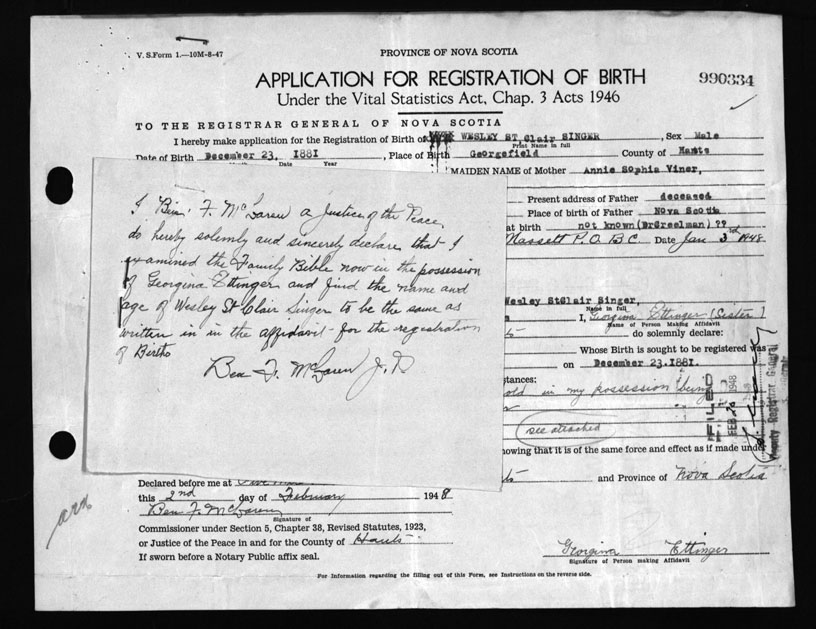 V. S. Form 1.—10M-8-47
PROVINCE OF NOVA SCOTIA
APPLICATION FOR REGISTRATION OF BIRTH
990334
Under the Vital Statistics Act, Chap. 3 Acts 1946
TO THE REGISTRAR GENERAL OF NOVA SCOTIA
I hereby make application for the Registration of Birth of WESLEY ST Clair SINGER, Sex Male
Print Name in full
Date of Birth December 23, 1881, Place of Birth Georgefield County of Hants
Month Day Year
MAIDEN NAME of Mother Annie Sophia Viner,
Present address of Father deceased
Place of birth of Father Nova Scotia
at birth not known (DrGreelman) ??
Massett P.O. B.C. Date Jan 3rd 1948
I Ben. F. McLaren a Justice of the Peace
do hereby solemnly and sincerely declare that I
examined the Family Bible now in the possession
of Georgina Ettinger and find the name and
age of Wesley St Clair Singer to be the same as
written in in the affidavit for the registration
of Births
Ben F. McLaren J. P.
Wesley StClair Singer,
Name in full
I, Georgina Ettinger (Sister)
Name of Person Making Affidavit
do solemnly declare:
Whose Birth is sought to be registered was
on December 23.1881.
stances:
old in my possession (being
see attached
nowing that it is of the same force and effect as if made under
and Province of Nova Scotia
FILED
FEB 20 1948
Deputy Registrar General
Declared before me at
this 2nd day of February 1948
Ben F. McLaren
Signature of
Commissioner under Section 5, Chapter 38, Revised Statutes, 1923,
or Justice of the Peace in and for the County of Hants
If sworn before a Notary Public affix seal.
Georgina Ettinger
Signature of Person making Affidavit
For Information regarding the filling out of this Form, see Instructions on the reverse side.